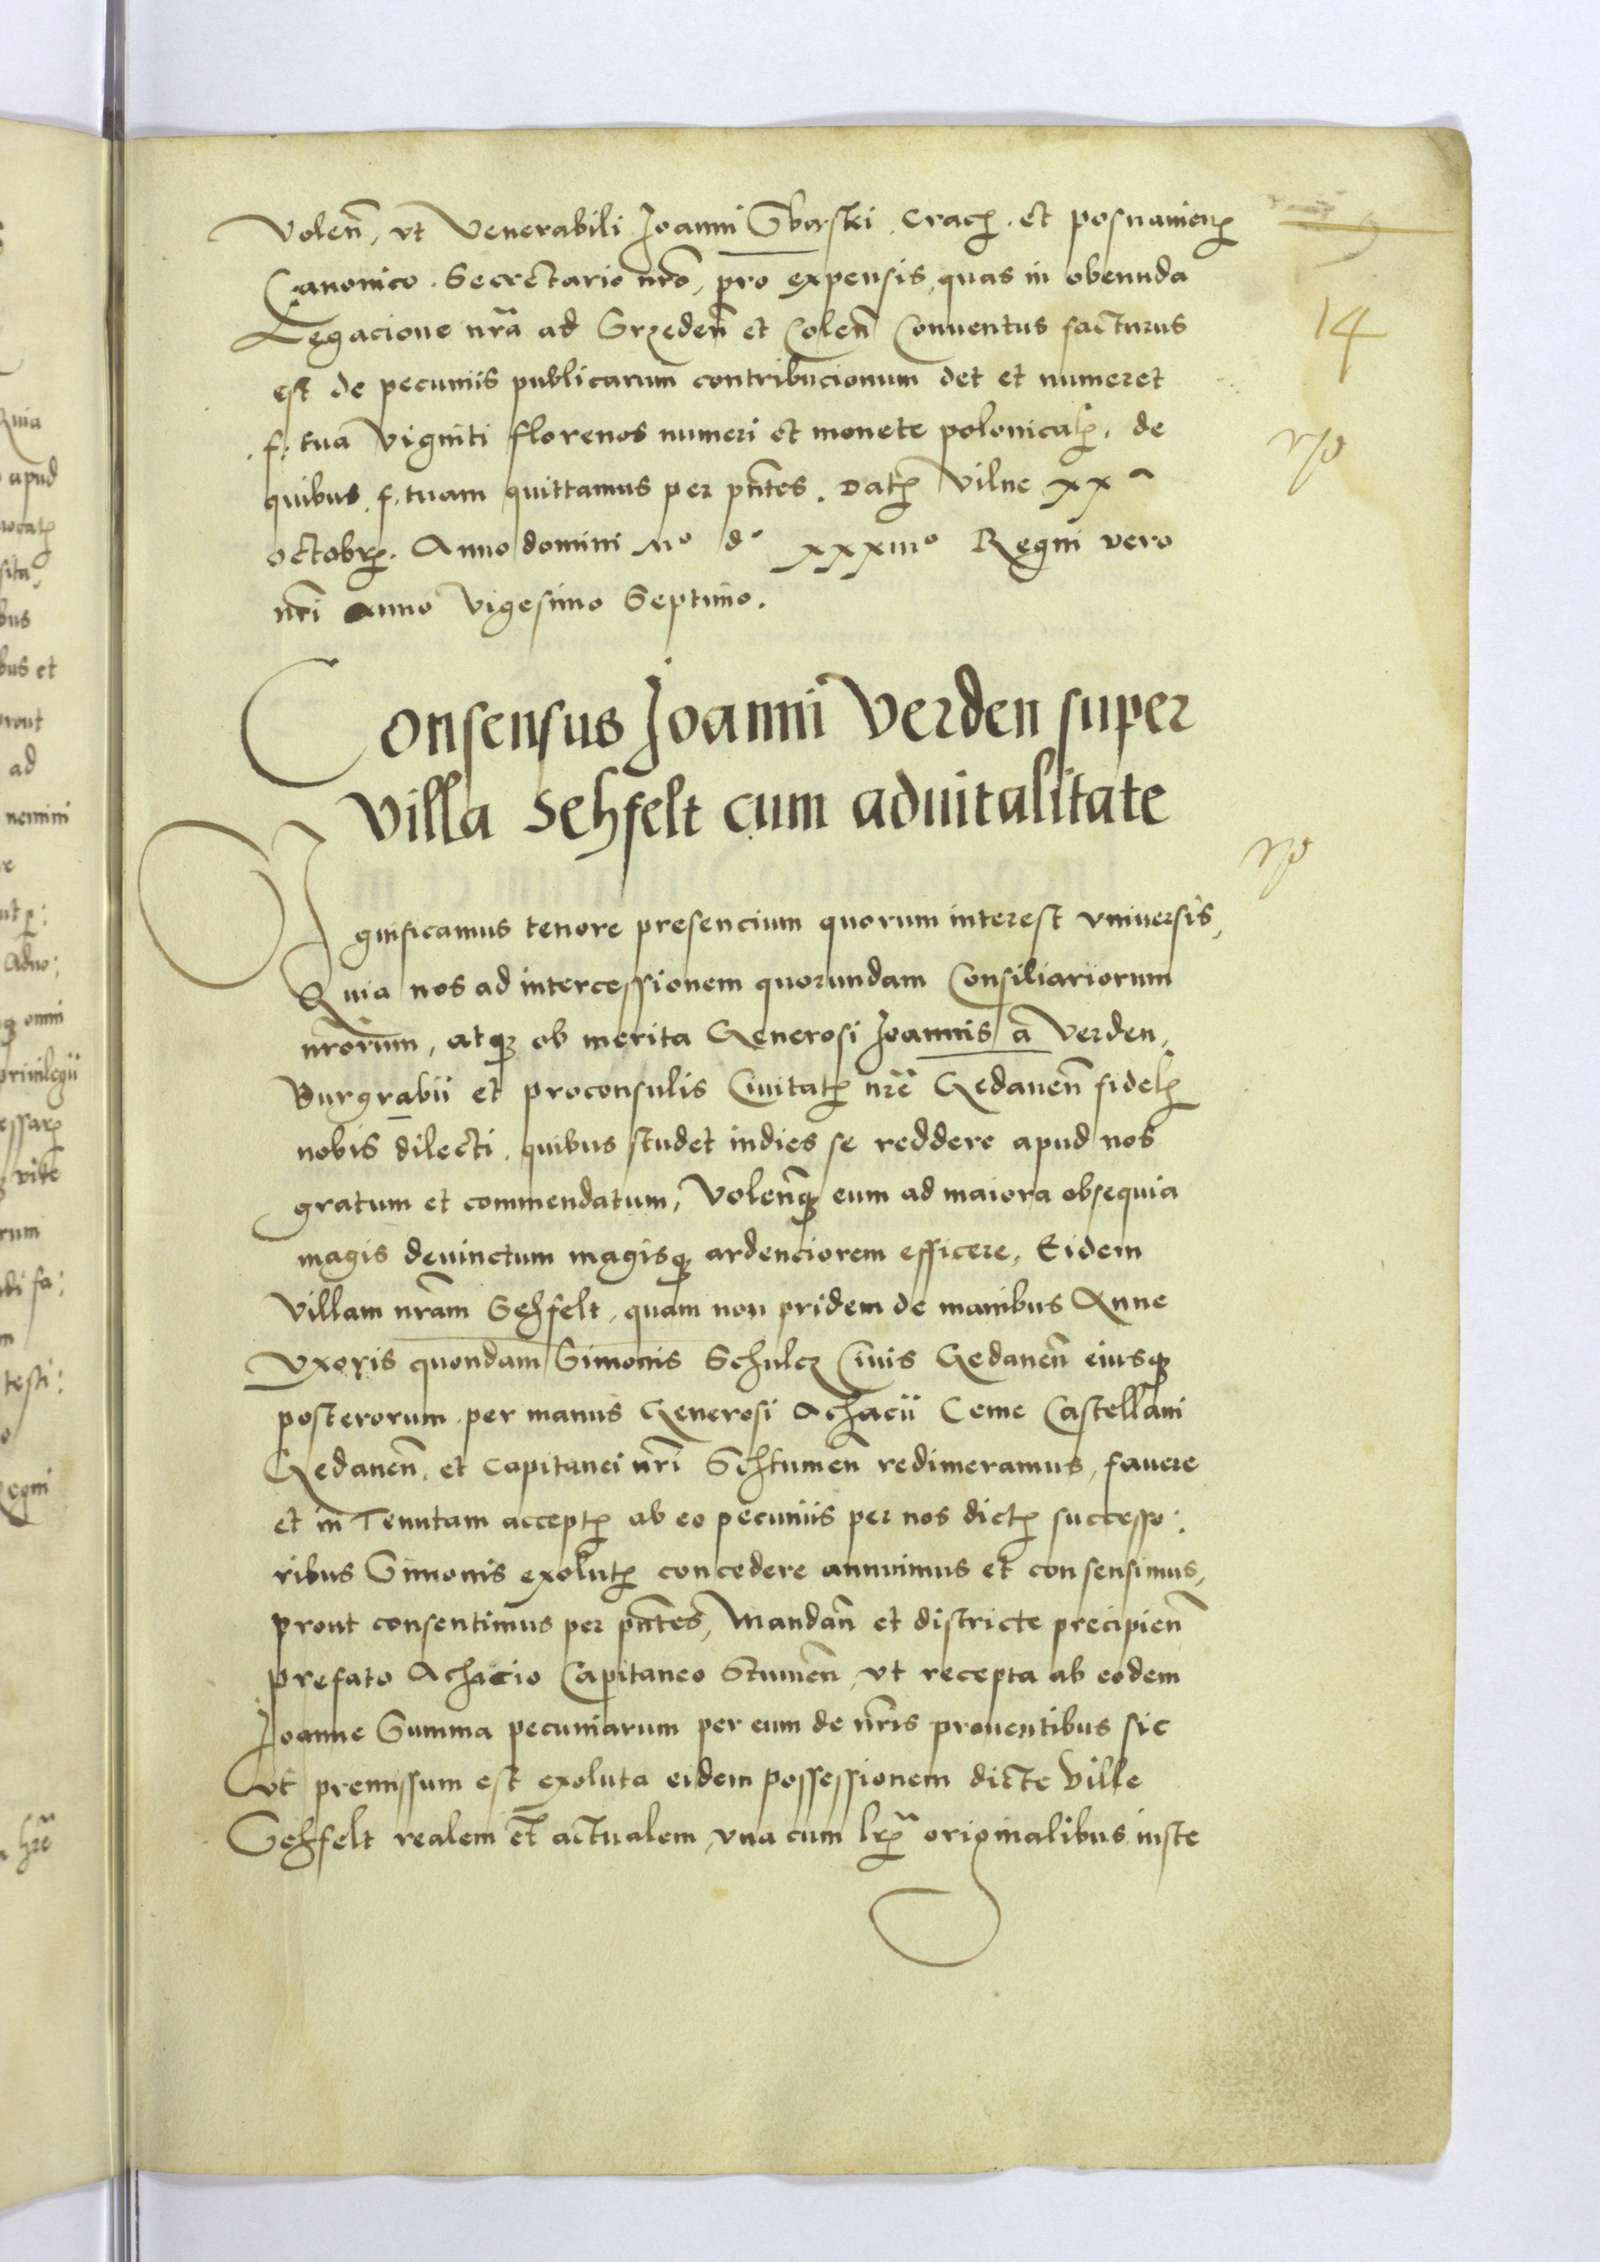 Volen̄, vt Venerabili Joanni Sbąski, Cracꝭ. et posnanienꝭ
14
Canonico. Secretario nr̄o, pro expensis, quas in obeunda
Legacione nr̄a ad Srzeden̄ et Colen̄ Conuentus facturus
est de pecuniis publicarum contribucionum det et numeret
f. tua Viginti florenos numeri et monete polonicalꝭ, de
quibus f. tuam quittamus per pn̄tes. Datꝭ Vilne xxa
octobrꝭ. Anno domini Mo do xxxiiio Regni vero
nr̄i anno Vigesimo Septimo.
Consensus Joanni Verden super
Villa Sehfelt cum aduitalitate
Significamus tenore presencium quorum interest vniuersis,
Quia nos ad intercessionem quorundam Consiliariorum
nr̄orum, atqꝫ ob merita Generosi Joannis a Verden,
Burgrabii et proconsulis Ciuitatꝭ nr̄e Gedanen̄ fidelꝭ
nobis dilecti, quibus studet indies se reddere apud nos
gratum et commendatum, Volen̄qꝫ eum ad maiora obsequia
magis deuinctum magisqꝫ ardenciorem efficere, Eidem
Villam nr̄am Sehfelt, quam non pridem de manibus Anne
Vxoris quondam Simonis Schulcz Ciuis Gedanen̄ eiusqꝫ
posterorum per manus Generosi Achacii Ceme Castellani
Gedanen̄. et Capitanei nr̄i Schtumen̄ redimeramus, fauere
et in Tenutam acceptꝭ ab eo pecuniis per nos dictꝭ successo:
ribus Simonis exolutꝭ concedere annuimus et consensimus,
prout consentimus per pn̄tes, Mandan̄ et districte precipien̄
prefato Achacio Capitaneo Stumen̄, vt recepta ab eodem
Joanne Summa pecuniarum per eum de nr̄is prouentibus sic
vt premissum est exoluta eidem possessionem dicte Ville
Sehfelt realem et actualem, vna cum lrꝭ originalibus iuste